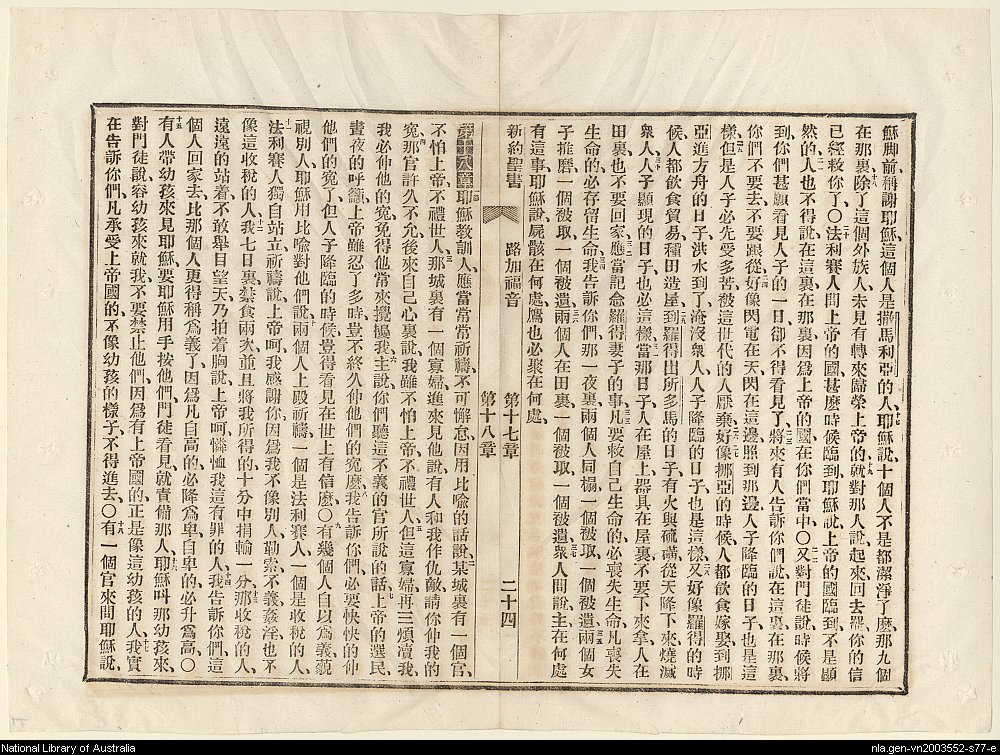 穌脚前稱謝耶穌這個人是撒馬利亞的人耶穌說十個人不是都潔淨了麽那九個
在那裏除了這個外族人未見有轉來歸榮上帝的就對那人說起來回去罷你的信
已經救你了〇法利賽人問上帝的國甚麽時候臨到耶穌說上帝的國臨到不是顯
然的人也不得說在這裏在那裏因爲上帝的國在你們當中〇又對門徒說時候將
到你們甚願看見人子的一日卻不得看見了將來有人告訴你們說在這裏在那裏
你們不要去不要跟從好像閃電在天閃在這邊照到那邊人子降臨的日子也是這
樣但是人子必先受多苦被這世代的人厭棄好像挪亞的時候人都飲食嫁娶到挪
亞進方舟的日子洪水到了淹沒衆人人子降臨的日子也是這樣又好像羅得的時
候人都飲食貿易種田造屋到羅得出所多馬的日子有火與硫磺從天降下來燒滅
衆人人子顯現的日子也必這樣當那日子人在屋上器具在屋裏不要下來拿人在
田裏也不要回家應當記念羅得妻子的事凡要救自己生命的必喪失生命凡喪失
生命的必存留生命我告訴你們那一夜裏兩個人同榻一個被取一個被遺兩個女
子推磨一個被取一個被遺兩個人在田裏一個被取一個被遺衆人問說主在何處
有這事耶穌說屍骸在何處鷹也必聚在何處
新約聖書 路加福音 第十七章 第十八章 二十四
第十八章耶穌教訓人應當常常祈禱不可懈怠因用比喩的話說某城裏有一個官
不怕上帝不禮世人那城裏有一個寡婦進來見他說有人和我作仇敵請你伸我的
寃那官許久不允後來自己心裏說我雖不怕上帝不禮世人但這寡婦再三煩瀆我
我必伸他的寃免得他常來攪擾我主說你們聽這不義的官所說的話上帝的選民
晝夜的呼籲上帝雖忍了多時豈不終久伸他們的寃麽我告訴你們必要快快的伸
他們的寃了但人子降臨的時候豈得看見在世上有信麽〇有幾個人自以爲義藐
視別人耶穌用比喩對他們說兩個人上殿祈禱一個是法利賽人一個是收稅的人
法利賽人獨自站立祈禱說上帝呵我感謝你因爲我不像別人勒索不義姦淫也不
像這收稅的人我七日裏禁食兩次並且將我所得的十分中捐輸一分那收稅的人
遠遠的站着不敢舉目望天乃拍着胸說上帝呵憐恤我這有罪的人我告訴你們這
個人回家去比那個人更得稱爲義了因爲凡自高的必降爲卑自卑的必升爲高〇
有人帶幼孩來見耶穌要耶穌用手按他們門徒看見就責備那人耶穌呌那幼孩來
對門徒說容幼孩來就我不要禁止他們因爲有上帝國的正是像這幼孩的人我實
在告訴你們凡承受上帝國的不像幼孩的樣子不得進去〇有一個官來問耶穌說
National Library of Australia
nla.gen-vn2003552-s77-e